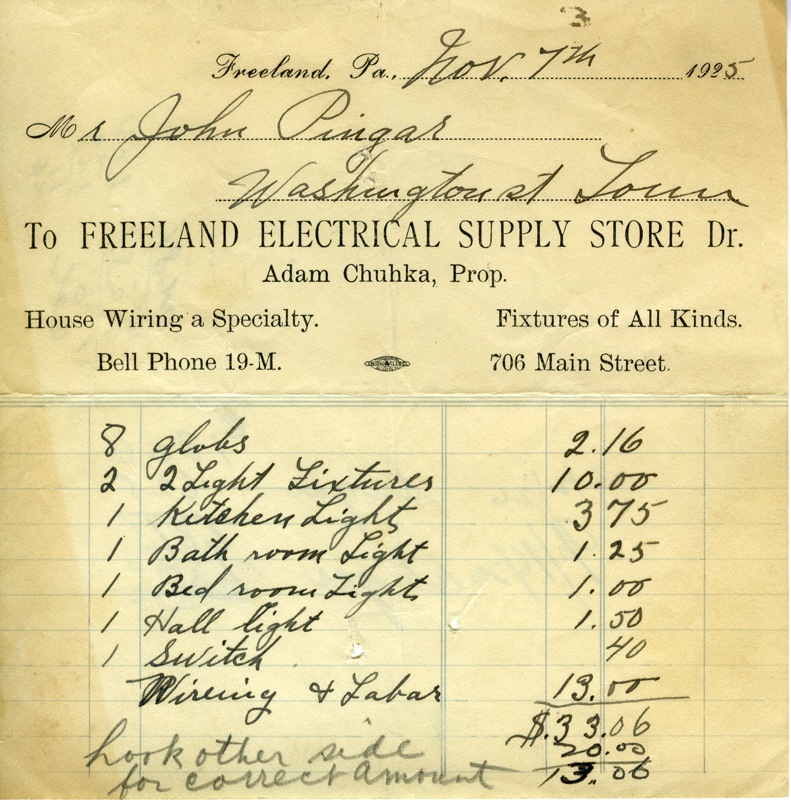 Freeland, Pa., Nov. 7th 1925
Mr John Pingar
Washington st Town
To FREELAND ELECTRICAL SUPPLY STORE Dr.
Adam Chuhka, Prop.
House Wiring a Specialty. Fixtures of All Kinds.
Bell Phone 19-M. 706 Main Street.
8 globs 2.16
2 2 Light Fixtures 10.00
1 Kitchen Light 3 75
1 Bath room Light 1.25
1 Bed room Light 1.00
1 Hall light 1.50
1 Switch 40
Wireing & Labar 13.00
$.33.06
20.00
13.06
look other side
for correct amount